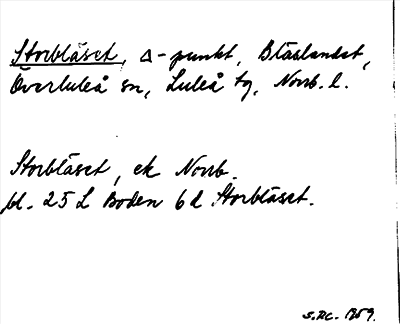 Storbläset, Δ-punkt, Bläslandet,
Överluleå sn, Luleå tg, Norrb. l.
Storbläset, ek Norrb.
bl. 25 L Boden 6 d Storbläset.